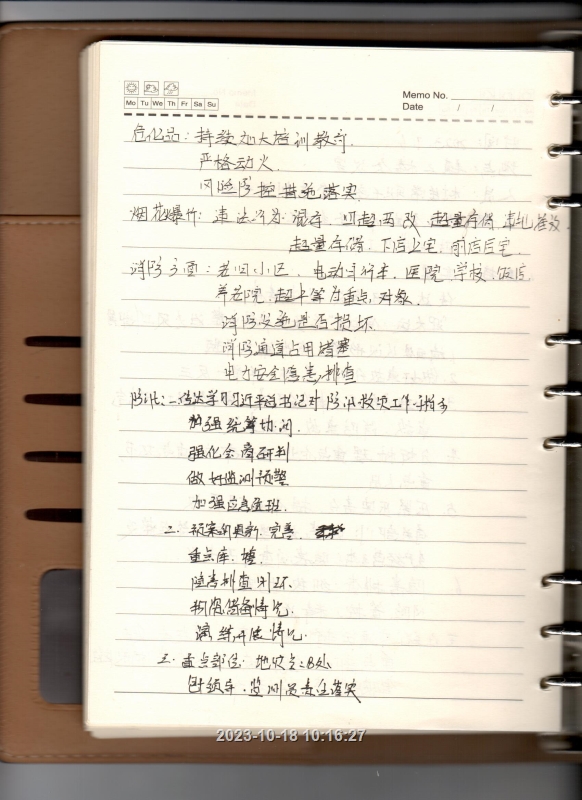 Memo No.
Mo Tu We Th Fr Sa Su
Date / /
危化品：持续加大培训教育.
严格动火.
风险防控措施落实.
烟花爆竹：违法行为：混存. 四超两改 超量存储
超量存储. 下店上宅. 前店后宅.
消防方面：老旧小区. 电动自行车. 医院 学校. 饭店.
养老院. 超市等为重点对象.
消防设施是否损坏
消防通道占用堵塞
电力安全隐患排查
防汛：一. 传达学习习近平总书记对防汛救灾工作指示
加强统筹协调.
强化会商研判
做好监测预警
加强应急值班.
二. 预案的更新. 完善.
重点库.
隐患排查闭环.
物资储备情况.
演练开展情况.
三. 重点部位. 地灾点:8处
包领导. 监测员责任落实
2023-10-18 10:16:27